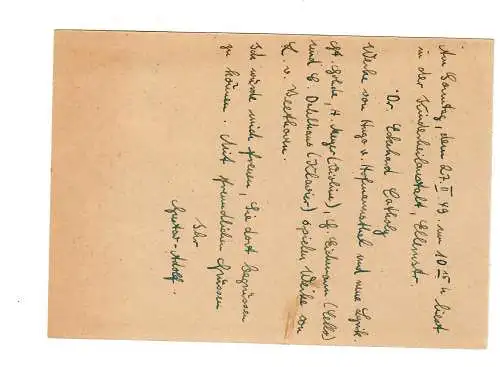 Am Sonntag, dem 27. II 49. um 10 15 h liest
in der Kinderheilanstalt, Ellernstr.
Dr. Eckehard Catholy
Werke von Hugo v. Hofmannsthal und neue Lyrik.
Cft. Gohde, H. Meyer (Violine), G. Eichmann (Cello)
und C. Dahlhaus (Klavier) spielen Werke von
L. v. Beethoven.
Ich würde mich freuen, Sie dort begrüssen
zu können. Mit freundlichen Grüssen
Ihr
Gustav-Adolf.